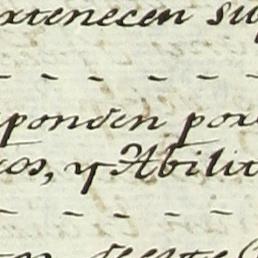 extenecen su
- - - - - -
ponden por
tos, y Abilit
- - - - - -